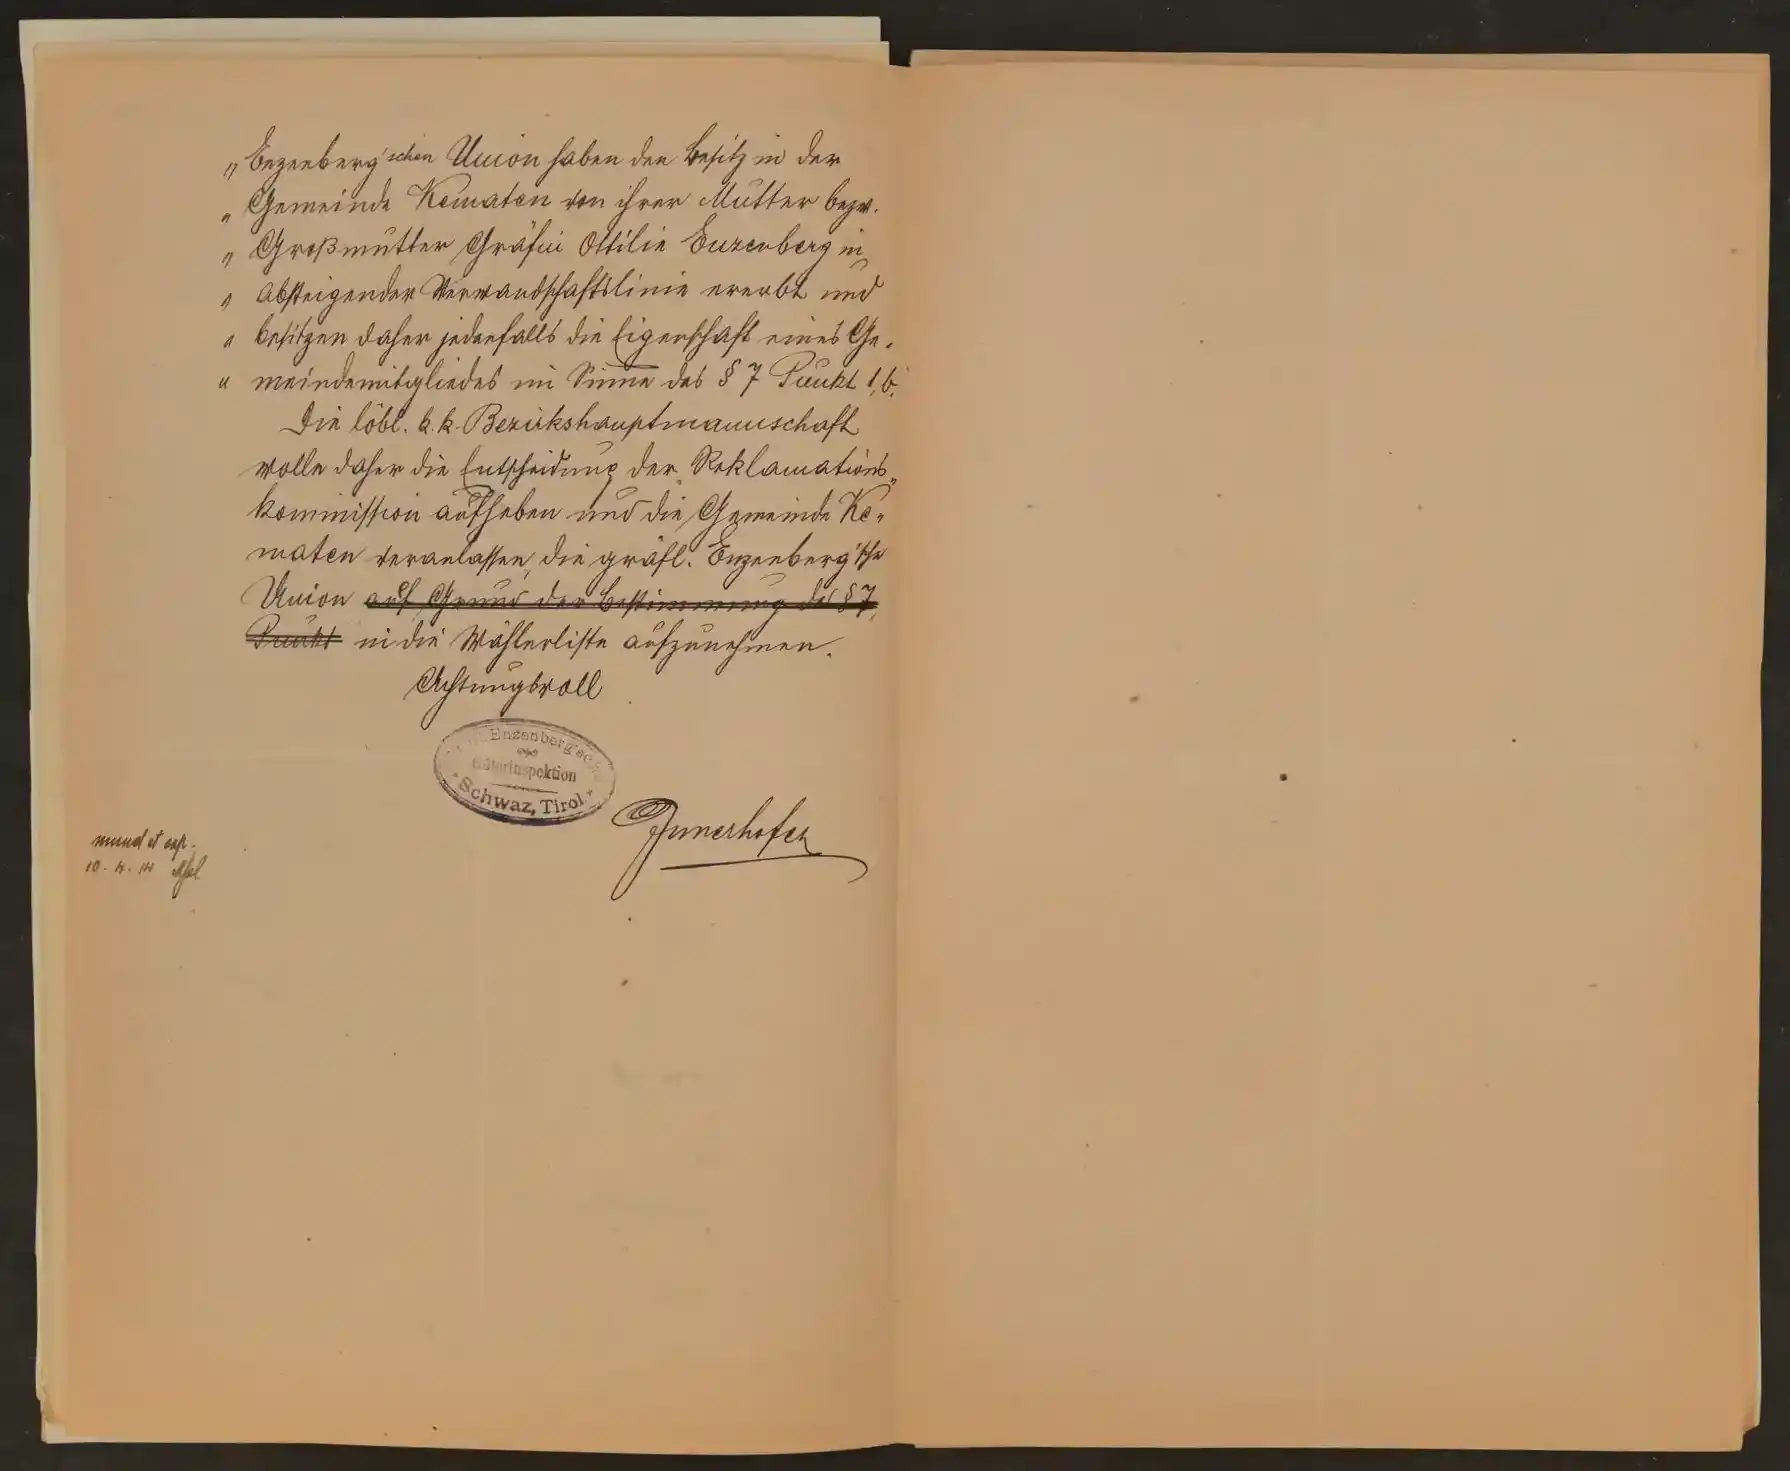 „ Enzenberg'schen Union haben den Besitz in der
„ Gemeinde Kematen von ihrer Mutter bezw.
„ Großmutter Gräfin Ottilie Enzenberg in
„ absteigender Verwandschaftslinie ererbt und
„ besitzen daher jedenfalls die Eigenschaft eines Ge-
„ meindemitgliedes im Sinne des § 7 Punkt 1, b.
Die löbl. k. k. Bezirkshauptmannschaft
wolle daher die Entscheidung der Reklamations-
kommission aufheben und die Gemeinde Ke-
maten veranlassen, die gräfl. Enzenberg'sche
Union auf Grund der Bestimmung des § 7,
Punkt in die Wählerliste aufzunehmen.
Achtungsvoll
Enzenberg'sche
Güterinspektion
Schwaz, Tirol
Innerhofer
mund et exp.
10. 4. 14